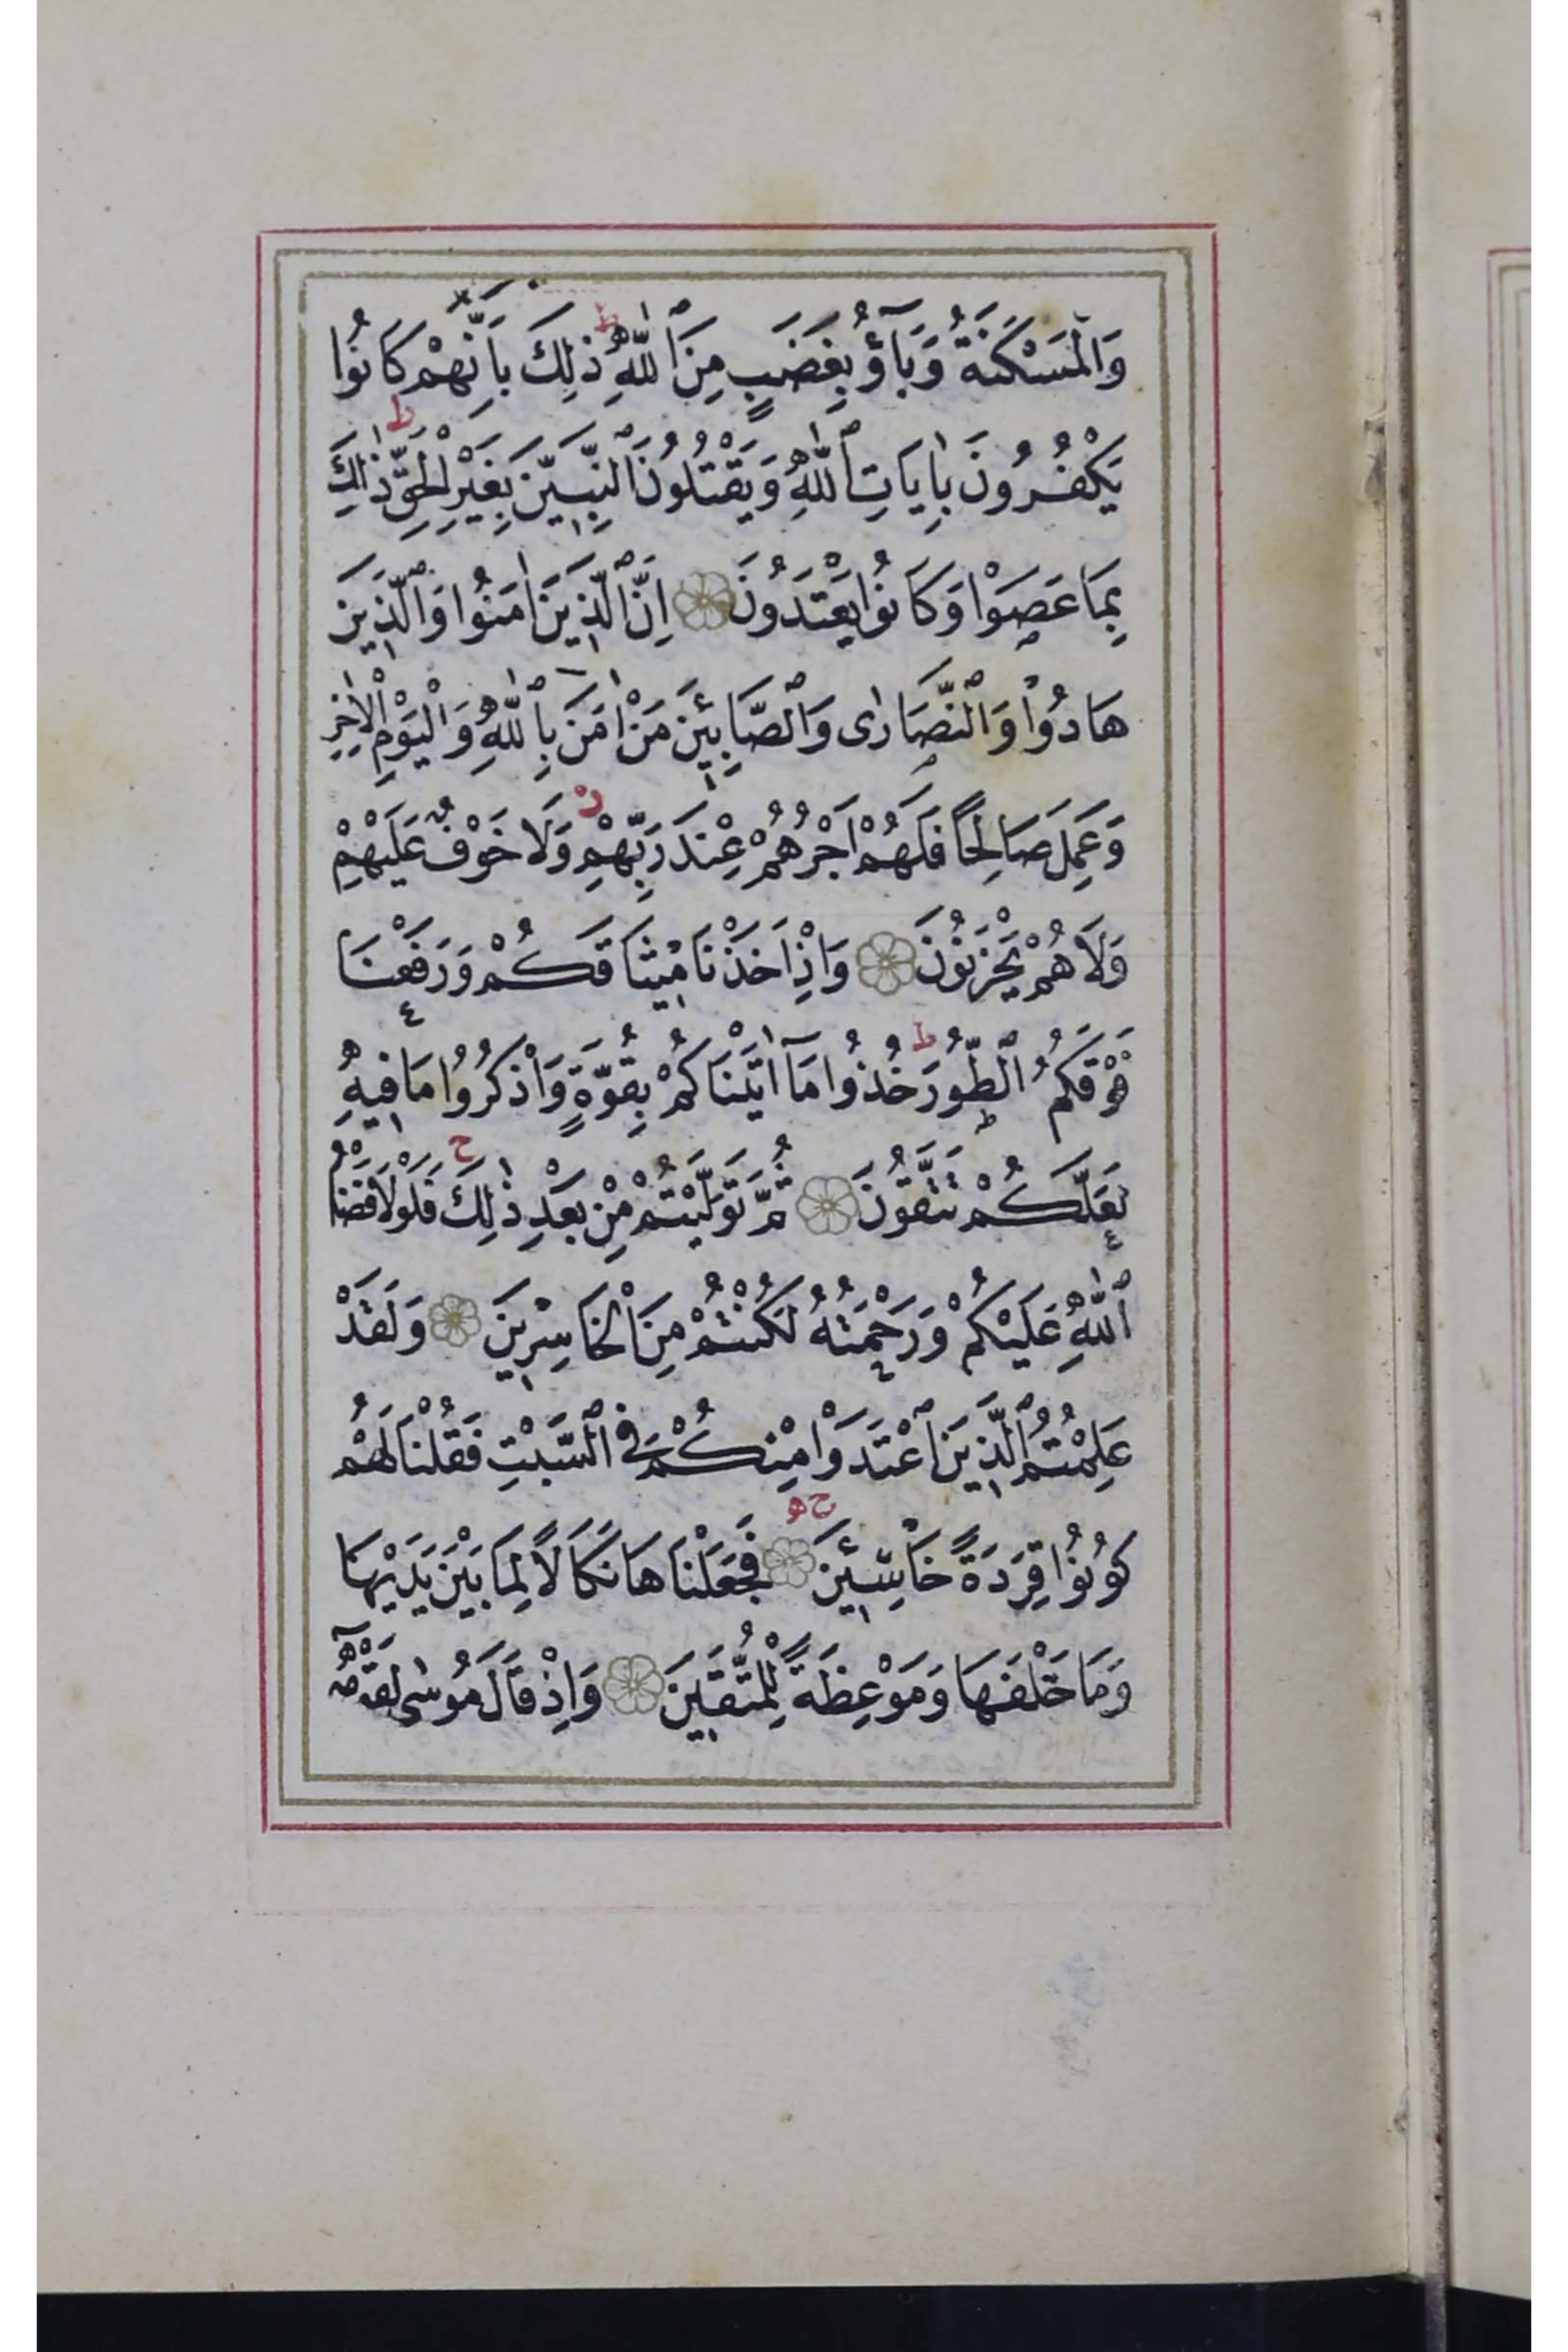 وَالْمَسْكَنَةُ وَبَآؤُ بِغَضَبٍ مِنَ ٱللّٰهِ ط ذٰلِكَ بِاَنَّهُمْ كَانُوا
يَكْفُرُونَ بِاٰيَاتِ ٱللّٰهِ وَيَقْتُلُونَ ٱلنَّبِيّٖنَ بِغَيْرِ الْحَقِّ ط ذٰلِكَ
بِمَا عَصَوْا وَكَانُوا يَعْتَدُونَ ۝ اِنَّ ٱلَّذٖينَ اٰمَنُوا وَٱلَّذٖينَ
هَادُوا وَٱلنَّصَارٰى وَٱلصَّابِـٖٔينَ مَنْ اٰمَنَ بِٱللّٰهِ وَالْيَوْمِ الْاٰخِرِ
وَعَمِلَ صَالِحًا فَلَهُمْ اَجْرُهُمْ عِنْدَ رَبِّهِمْ ز وَلَا خَوْفٌ عَلَيْهِمْ
وَلَا هُمْ يَحْزَنُونَ ۝ وَاِذْ اَخَذْنَا مٖيثَاقَكُمْ وَرَفَعْنَا
فَوْقَكُمُ ٱلطُّورَ ط خُذُوا مَآ اٰتَيْنَاكُمْ بِقُوَّةٍ وَاذْكُرُوا مَا فٖيهِ
لَعَلَّكُمْ تَتَّقُونَ ۝ ثُمَّ تَوَلَّيْتُمْ مِنْ بَعْدِ ذٰلِكَ ج فَلَوْلَا فَضْلُ
ٱللّٰهِ عَلَيْكُمْ وَرَحْمَتُهُ لَكُنْتُمْ مِنَ الْخَاسِرٖينَ ۝ وَلَقَدْ
عَلِمْتُمُ ٱلَّذٖينَ ٱعْتَدَوْا مِنْكُمْ فِى ٱلسَّبْتِ فَقُلْنَا لَهُمْ
كُونُوا قِرَدَةً خَاسِـٖٔينَ ۝ ج فَجَعَلْنَاهَا نَكَالًا لِمَا بَيْنَ يَدَيْهَا
وَمَا خَلْفَهَا وَمَوْعِظَةً لِلْمُتَّقٖينَ ۝ وَاِذْ قَالَ مُوسٰى لِقَوْمِهٖٓ